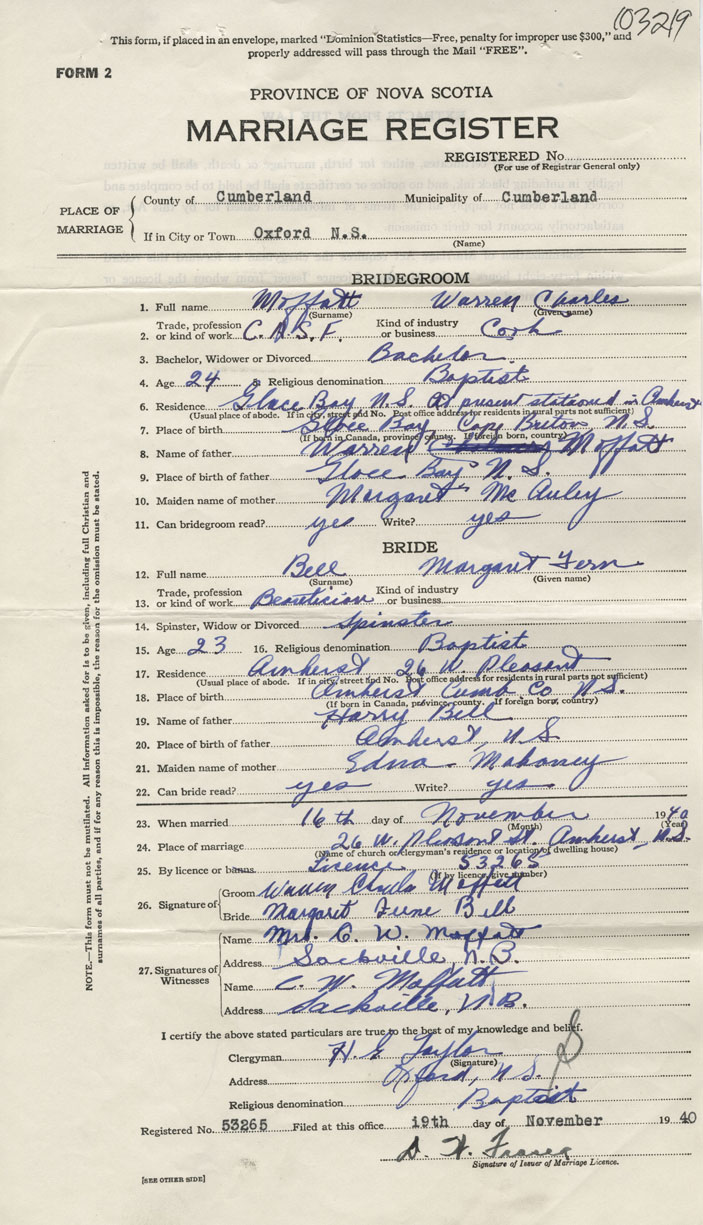 103219
This form, if placed in an envelope, marked "Dominion Statistics—Free, penalty for improper use $300," and
properly addressed will pass through the Mail "FREE".
FORM 2
PROVINCE OF NOVA SCOTIA
MARRIAGE REGISTER
REGISTERED No.
(For use of Registrar General only)
PLACE OF MARRIAGE
County of Cumberland Municipality of Cumberland
If in City or Town Oxford N.S.
(Name)
BRIDEGROOM
1. Full name Moffatt Warren Charles
(Surname) (Given name)
2. Trade, profession or kind of work C.A.S.F. Kind of industry or business Cook
3. Bachelor, Widower or Divorced Bachelor.
4. Age 24 5. Religious denomination Baptist
6. Residence Glace Bay N.S. At present stationed in Amherst
(Usual place of abode. If in city, street and No. Post office address for residents in rural parts not sufficient)
7. Place of birth Glace Bay, Cape Breton, N.S.
(If born in Canada, province, county. If foreign born, country)
8. Name of father Warren Moffatt
9. Place of birth of father Glace Bay N.S.
10. Maiden name of mother Margaret McAuley
11. Can bridegroom read? yes Write? yes
BRIDE
12. Full name Bell Margaret Fern
(Surname) (Given name)
13. Trade, profession or kind of work Beautician Kind of industry or business
14. Spinster, Widow or Divorced Spinster
15. Age 23 16. Religious denomination Baptist
17. Residence Amherst 26 W. Pleasant
(Usual place of abode. If in city, street and No. Post office address for residents in rural parts not sufficient)
18. Place of birth Amherst Cumb Co N.S.
(If born in Canada, province, county. If foreign born, country)
19. Name of father Harry Bell
20. Place of birth of father Amherst, N.S
21. Maiden name of mother Edna Mahoney
22. Can bride read? yes Write? yes
23. When married 16th day of November 1940
(Month) (Year)
24. Place of marriage 26 W. Pleasant St. Amherst, N.S.
(Name of church or clergyman's residence or location of dwelling house)
25. By licence or banns Licence 53265
(If by licence, give number)
26. Signature of
Groom Warren Charles Moffatt
Bride Margaret Fern Bell
27. Signatures of Witnesses
Name Mrs. C. W. Moffatt
Address Sackville, N.B.
Name C. W. Moffatt
Address Sackville, N.B.
I certify the above stated particulars are true to the best of my knowledge and belief.
Clergyman H. E Taylor
(Signature)
Address Oxford, N.S.
Religious denomination Baptist
Registered No. 53265 Filed at this office 19th day of November 1940
Signature of Issuer of Marriage Licence.
[SEE OTHER SIDE]
NOTE.—This form must not be mutilated. All information asked for is to be given, including full Christian and
surnames of all parties, and if for any reason this is impossible, the reason for the omission must be stated.